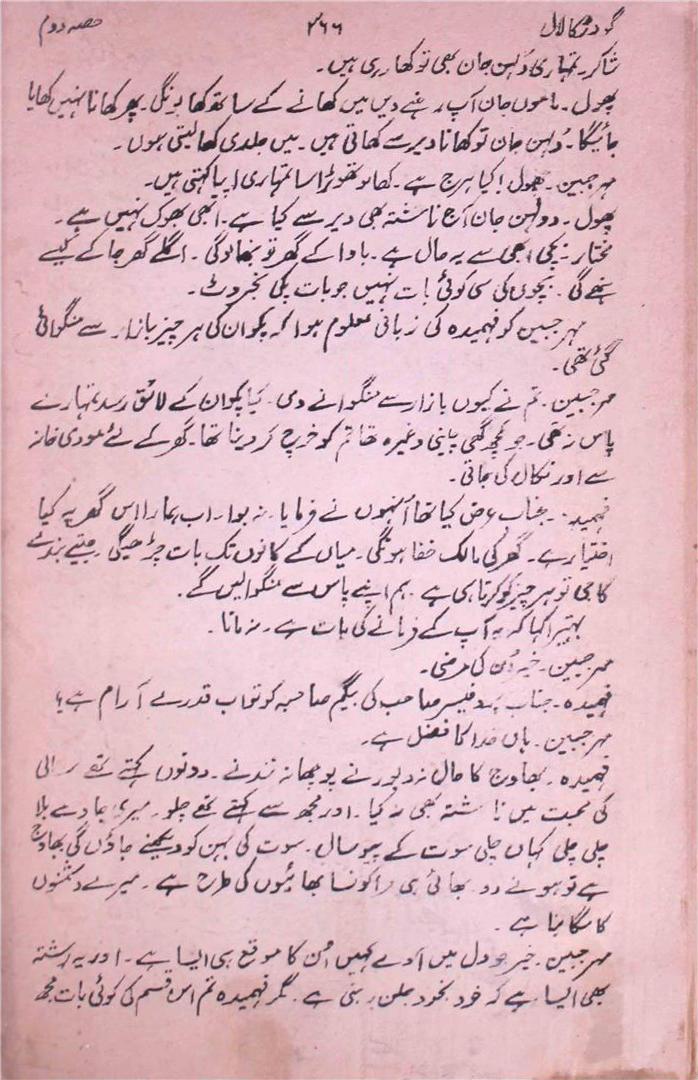 گودڑ کا لال ۲۶۶ حصہ دوم
شاکر۔ تمہاری دُلہن جان بھی تو کھا رہی ہیں۔
پھول۔ ماموں جان آپ رہنے دیں میں کھانے کے ساتھ کھا لونگی۔ پھر کھانا نہیں کھایا
جائیگا۔ دُلہن جان تو کھانا دیر سے کھاتی ہیں۔ میں جلدی کھا لیتی ہوں۔
مہر جبین۔ پھول! کیا ہرج ہے۔ کھا لو تھوڑا سا تمہاری اپیا کہتی ہیں۔
پھول۔ دولہن جان آج ناشتہ بھی دیر سے کیا ہے۔ ابھی بھوک نہیں ہے۔
مختار۔ بچی ابھی سے یہ حال ہے۔ باوا کے گھر تو نبھا لوگی۔ اگلے گھر جا کے کیسے
بنے گی۔ بچوں کی سی کوئی بات نہیں جو بات پکی
مہر جبین کو فہمیدہ کی زبانی معلوم ہوا کہ پکوان کی ہر چیز بازار سے منگوائی
گئی تھی۔
مہر جبین۔ تم نے کیوں بازار سے منگوانے دی۔ کیا پکوان کے لائق رسد تمہارے
پاس نہ تھی۔ جو کچھ گھی چینی وغیرہ تھا تم کو خرچ کر دینا تھا۔ گھر کے لئے مودی خانہ
سے اور نکال لی جاتی۔
فہمیدہ۔ جناب عرض کیا تھا اُنہوں نے فرمایا۔ نہ بوا۔ اب ہمارا اس گھر پہ کیا
اختیار ہے۔ گھر کی مالک خفا ہونگی۔ میاں کے کانوں تک بات چڑھیگی۔ جیتے بندے
کا جی تو ہر چیز کو کرتا ہی ہے۔ ہم اپنے پاس سے منگوا لیں گے۔
بہتیرا کہا کہ یہ آپ کے فرمانے کی بات ہے۔ نہ مانا۔
مہر جبین۔ خیر اُن کی مرضی۔
فہمیدہ۔ جناب پروفیسر صاحب کی بیگم صاحبہ کو تو اب قدرے آرام ہے؟
مہر جبین۔ ہاں خدا کا فضل ہے۔
فہمیدہ۔ بھاوج کا حال نہ دیور نے پوچھا نہ نند نے۔ دونوں کہتے تھے
کی محبت میں ناشتہ بھی نہ کیا۔ اور مجھ سے کہتے تھے چلو۔ میری جاوے بلا
چلی چلی کہاں چلی سوت کے پیوسال۔ سوت کی بہن کو دیکھنے جاؤں گی بھاوج
ہے تو ہونے دو۔ بھائی ہی مرا کونسا بھائیوں کی طرح ہے۔ میرے دشمنوں
کا سگا بنا ہے۔
مہر جبین۔ خیر جو دل میں آوے کہیں اُن کا موقع ہی ایسا ہے۔ اور یہ رشتہ
بھی ایسا ہے کہ خود بخود جلن رہتی ہے۔ مگر فہمیدہ تم اس قسم کی کوئی بات مجھ